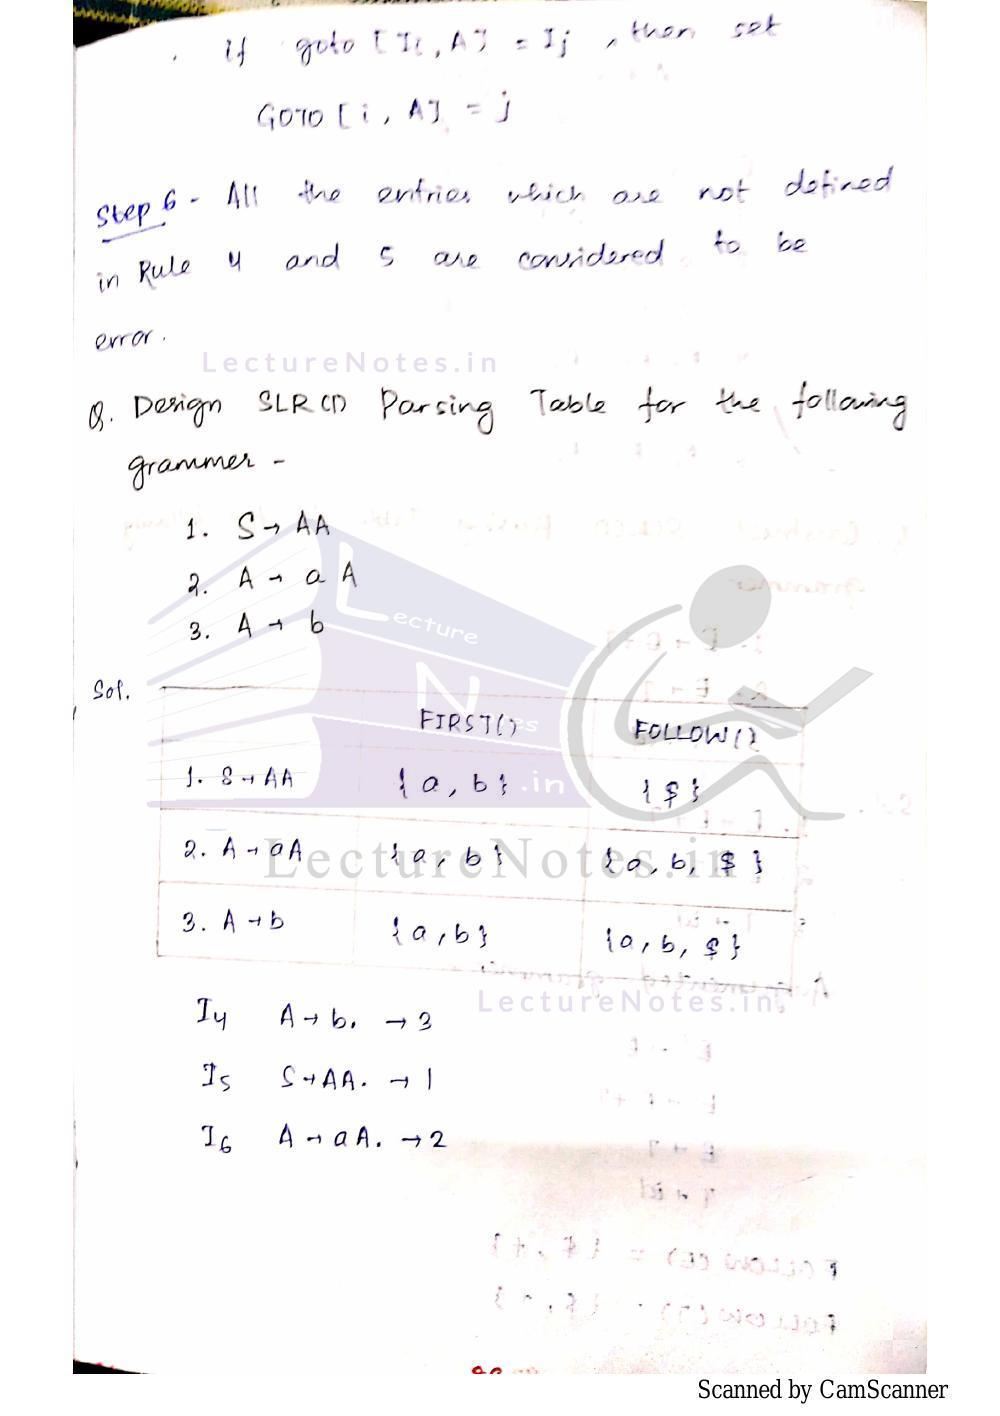 if goto [Ii, A] = Ij, then set
GOTO [i, A] = j
Step 6 - All the entries which are not defined
in Rule 4 and 5 are considered to be
error.
LectureNotes.in
Q. Design SLR(1) Parsing Table for the following
grammer -
1. S → AA
2. A → a A
3. A → b
Lecture
Notes
.in
Sol.
FIRST() FOLLOW()
1. S → AA {a, b} {$}
2. A → aA {a, b} {a, b, $}
LectureNotes.in
3. A → b {a, b} {a, b, $}
LectureNotes.in
I4 A → b. → 3
I5 S → AA. → 1
I6 A → aA. → 2
Scanned by CamScanner